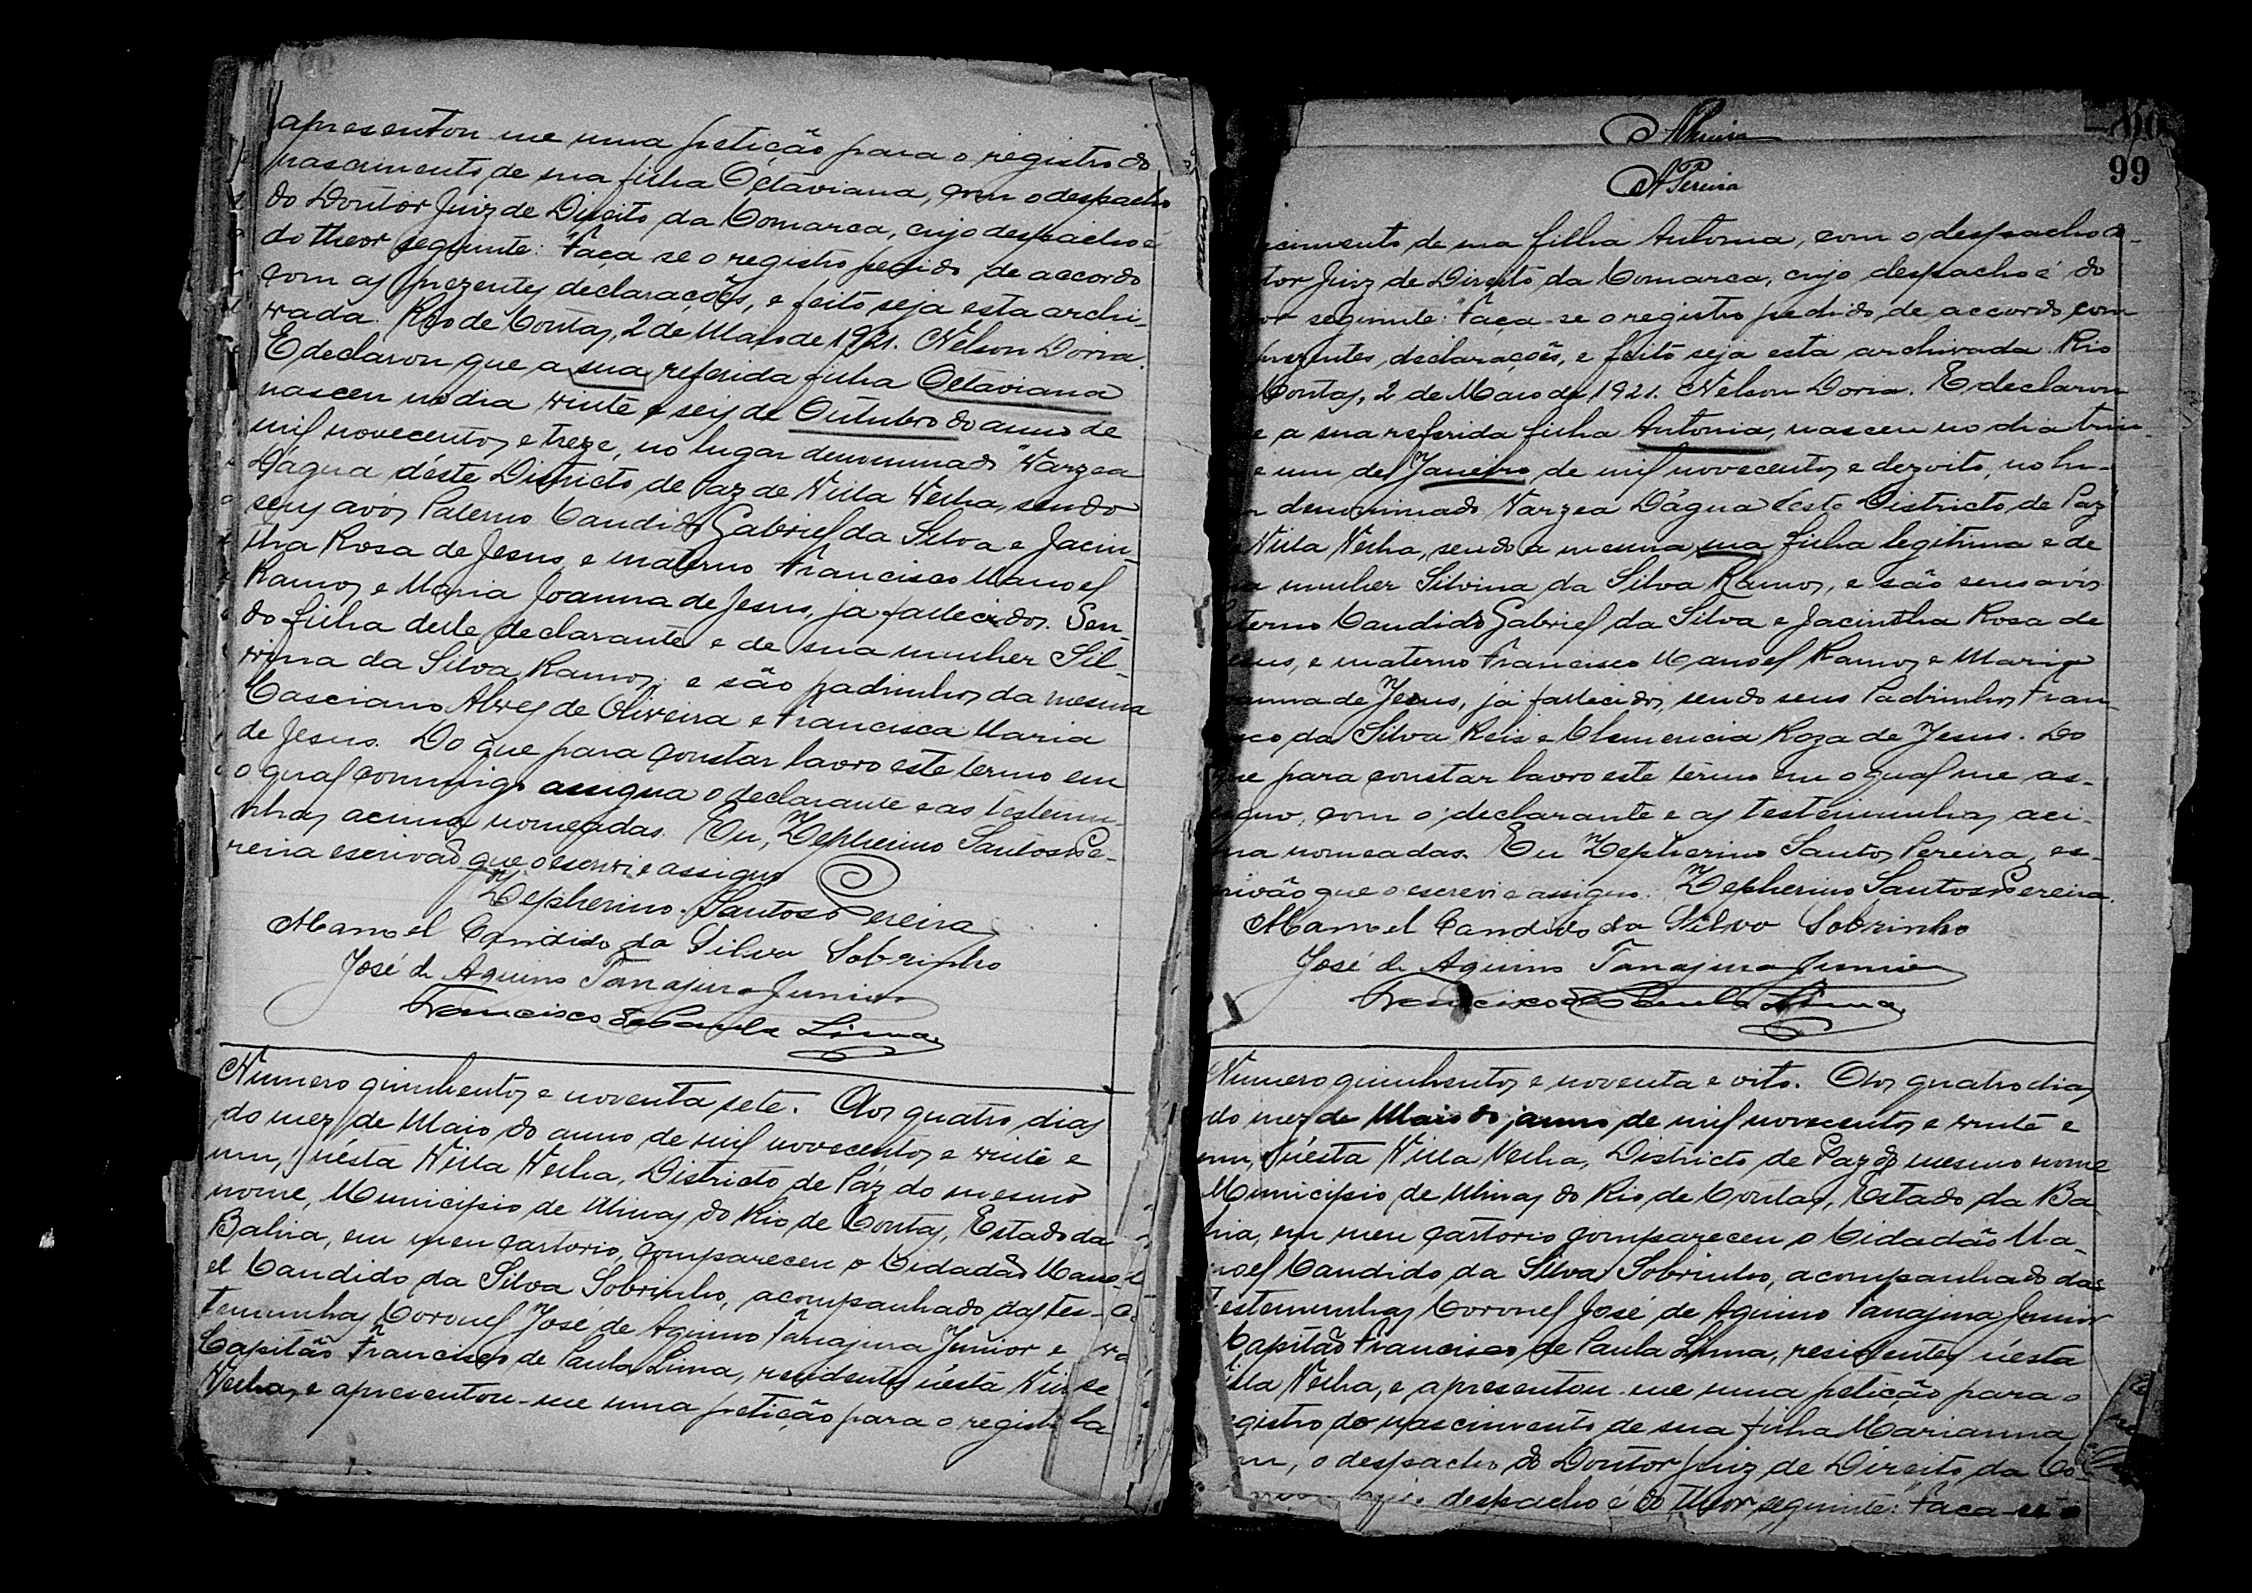 apresentou me uma petição para o registro do
nascimento de sua filha Octaviana, com o despacho
do Doutor Juiz de Direito da Comarca, cujo despacho é
do theor seguinte: Faça se o registro pedido de accordo
com as prezentes declarações, e feito seja esta archi-
vada. Rio de Contas, 2 de Maio de 1921. Nelson Doria
E declarou que a sua referida filha Octaviana
nasceu no dia vinte e seis de Outubro do anno de
mil novecentos e treze, no lugar denominado "Varzea
Dágua déste Districto de Paz de Villa Velha, sendo
seus avós Paterno Candido Gabriel da Silva e Jacin-
tha Rosa de Jesus e materno Francisco Manoel
Ramos e Maria Joanna de Jesus, ja fallecidos. Sen-
do filha delle declarante e de sua mulher Sil-
vina da Silva Ramos; e são padrinhos da mesma
Casciano Alves de Oliveira e Francisca Maria
de Jesus. Do que para constar lavro este termo em
o qual commigo assigna o declarante e as testemu-
nhas acima nomeadas. Eu, Zepherino Santos Pe-
reira escrivão que o escrevi e assigno
Zepherino Santos Pereira
Manoel Candido da Silva Sobrinho
José de Aquino Tanajura Junior
Francisco de Paula Lima
Numero quinhentos e noventa sete. Aos quatro dias
do mez de Maio do anno de mil novecentos e vinte e
um, n'ésta Villa Velha, Districto de Páz do mesmo
nome, Municipio de Minas do Rio de Contas, Estado da
Bahia, em meu cartorio, compareceu o Cidadão Mano-
el Candido da Silva Sobrinho, acompanhado das tes-
temunhas Coronel José de Aquino Tanajura Junior e
Capitão Francisco de Paula Lima, residentes n'ésta Villa
Velha, e apresentou-me uma petição para o registro
A Pereira
99
A Pereira
cimento de sua filha Antonia, com o despacho do
tor Juiz de Direito da Comarca, cujo despacho é do
seguinte: "Faça-se o registro pedido, de accordo com
prezentes declarações, e feito seja esta archivada. Rio
Contas, 2 de Maio de 1921. Nelson Doria. E declarou
e a sua referida filha Antonia, nasceu no dia trin-
e um de Janeiro de mil novecentos e dezoito, no lu-
denominado Varzea Dágua deste Districto de Paz
Villa Velha, sendo a mesma sua filha legitima e de
mulher Silvina da Silva Ramos, e são seus avós
terno Candido Gabriel da Silva e Jacintha Rosa de
sus, e materno Francisco Manoel Ramos e Maria
anna de Jesus, já fallecidos, sendo seus Padrinhos Fran-
co da Silva Reis e Clemencia Roza de Jesus. Do
que para constar lavro este termo em o qual me as-
signo, com o declarante e as testemunhas aci-
ma nomeadas. Eu Zepherino Santos Pereira, es-
crivão que o escrevi e assigno. Zepherino Santos Pereira.
Manoel Candido da Silva Sobrinho
José de Aquino Tanajura Junior
Francisco de Paula Lima
Numero quinhentos e noventa e oito. Aos quatro dias
do mez de Maio do anno de mil novecentos e vinte e
um, n'ésta Villa Velha, Districto de Paz do mesmo nome
Municipio de Minas do Rio de Contas, Estado da Ba
hia, em meu cartorio compareceu o Cidadão Ma-
noel Candido da Silva Sobrinho, acompanhado das
testemunhas Coronel José de Aquino Tanajura Junior
Capitão Francisco de Paula Lima, residentes n'ésta
Villa Velha, e apresentou-me uma petição para o
registro do nascimento de sua filha Marianna
o despacho do Doutor Juiz de Direito da Co
despacho é do theor seguinte: "Faça-se o